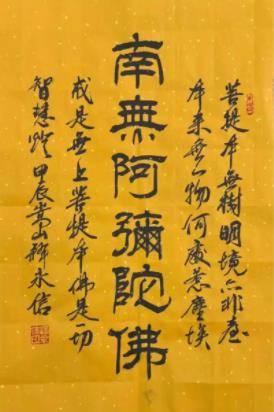 菩提本無樹明境亦非臺
本來無一物何處惹塵埃
南無阿彌陀佛
戒是無上菩提本佛是一切
智慧燈 甲辰嵩山釋永信